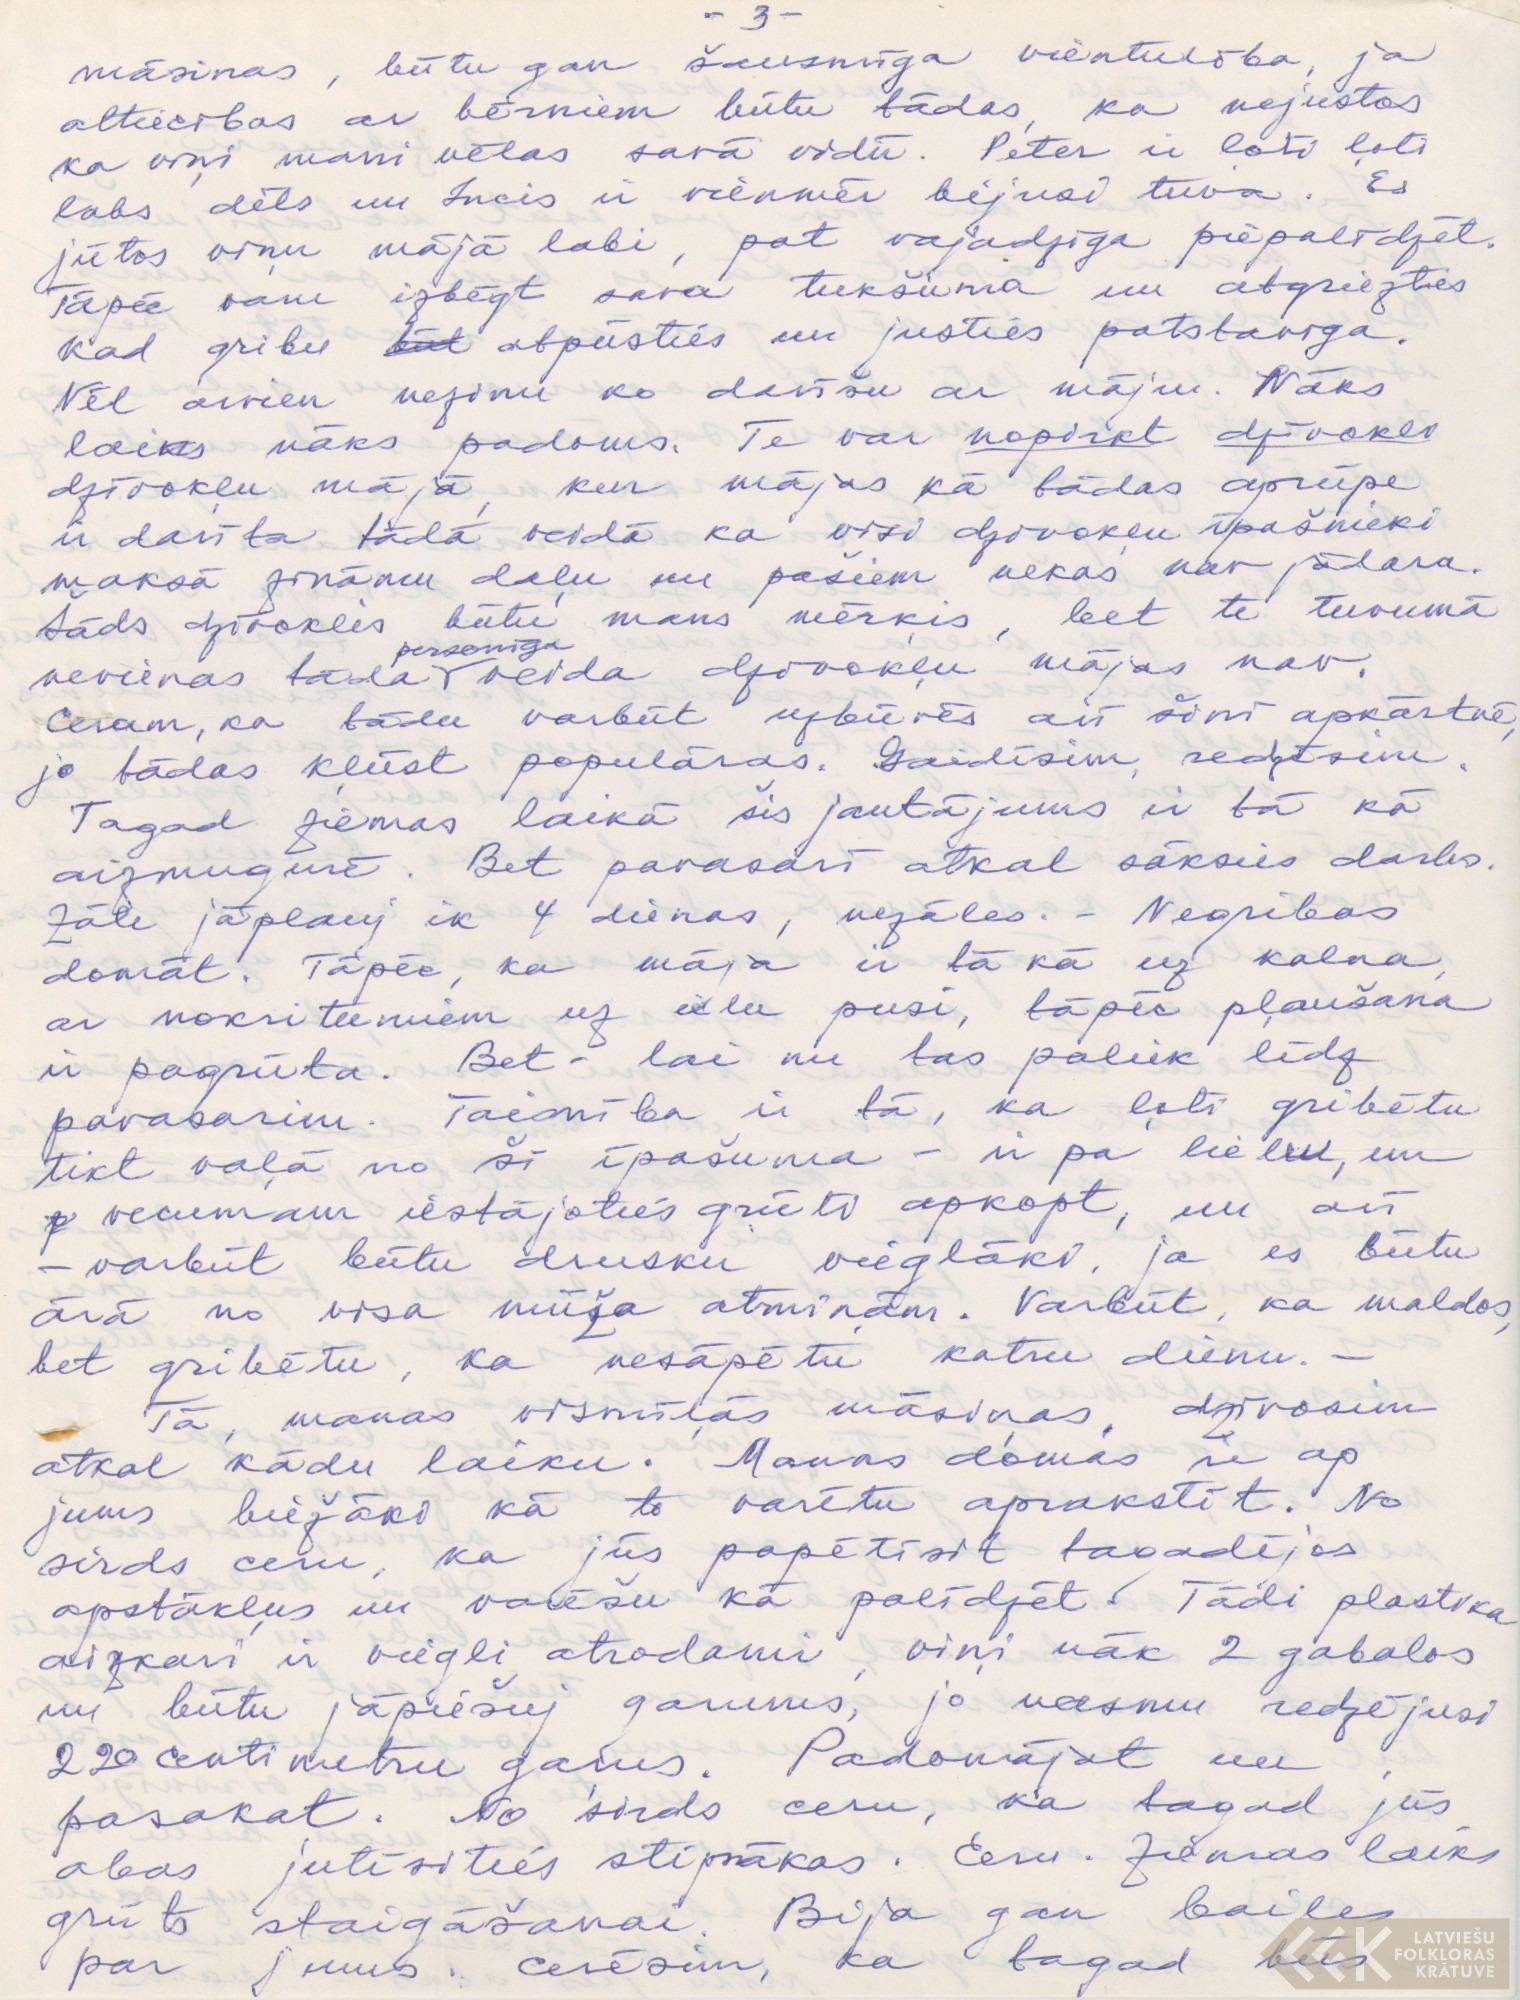 - 3 -
māsiņas, būtu gan šausmīga vientulība, ja
attiecības ar bērniem būtu tādas, ka nejustos
ka viņi mani vēlas savā vidū. Pēter ir ļoti ļoti
labs dēls un Incis ir vienmēr bijusi tuva. Es
jūtos viņu mājā labi, pat vajadzīga piepalīdzēt.
Tāpēc varu izbēgt sava tukšuma un atgriezties
kad gribu būt atpūsties un justies patstāvīga.
Vēl arvien nezinu ko darīšu ar māju. Nāks
laiks nāks padoms. Te var nopirkt dzīvokli
dzīvokļu mājā, kur mājas kā tādas aprūpe
ir darīta tādā veidā ka visi dzīvokļu īpašnieki
maksā zināmu daļu un pašiem nekas nav jādara.
Tāds dzīvoklis būtu mans mērķis, bet te tuvumā
personīga
nevienas tāda veida dzīvokļu mājas nav.
Ceram, ka tādu varbūt uzbūvēs arī šinī apkārtnē,
jo tādas kļūst populāras. Gaidīsim, redzēsim.
Tagad ziemas laikā šis jautājums ir tā kā
aizmugurē. Bet pavasarī atkal sāksies darbs.
Zāle jāpļauj ik 4 dienas, nezāles. - Negribas
domāt. Tāpēc, ka māja ir tā kā uz kalna,
ar nokritumiem uz ielu pusi, tāpēc pļaušana
ir pagrūta. Bet - lai nu tas paliek līdz
pavasarim. Taisnība ir tā, ka ļoti gribētu
tikt vaļā no šī īpašuma - ir pa lielu, un
vecumam iestājoties grūti apkopt, un arī
- varbūt būtu drusku vieglāki, ja es būtu
ārā no visa mūža atmiņām. Varbūt, ka maldos,
bet gribētu, ka nesāpētu katru dienu. -
Tā, manas vismīļās māsiņas, dzīvosim
atkal kādu laiku. Manas domas ir ap
jums biežāki kā to varētu aprakstīt. No
sirds ceru, ka jūs papētīsit tagadējos
apstākļus un varēšu kā palīdzēt. Tādi plastika
aizkari ir viegli atrodami, viņi nāk 2 gabalos
un būtu jāpiešuj garums, jo neesmu redzējusi
220 centimetru garus. Padomājat un
pasakat. No sirds ceru, ka tagad jūs
abas jutīsities stiprākas. Ceru. Ziemas laiks
grūts staigāšanai. Bija gan bailes
par jums. Cerēsim, ka tagad būs
LATVIEŠU
FOLKLORAS
KRĀTUVE